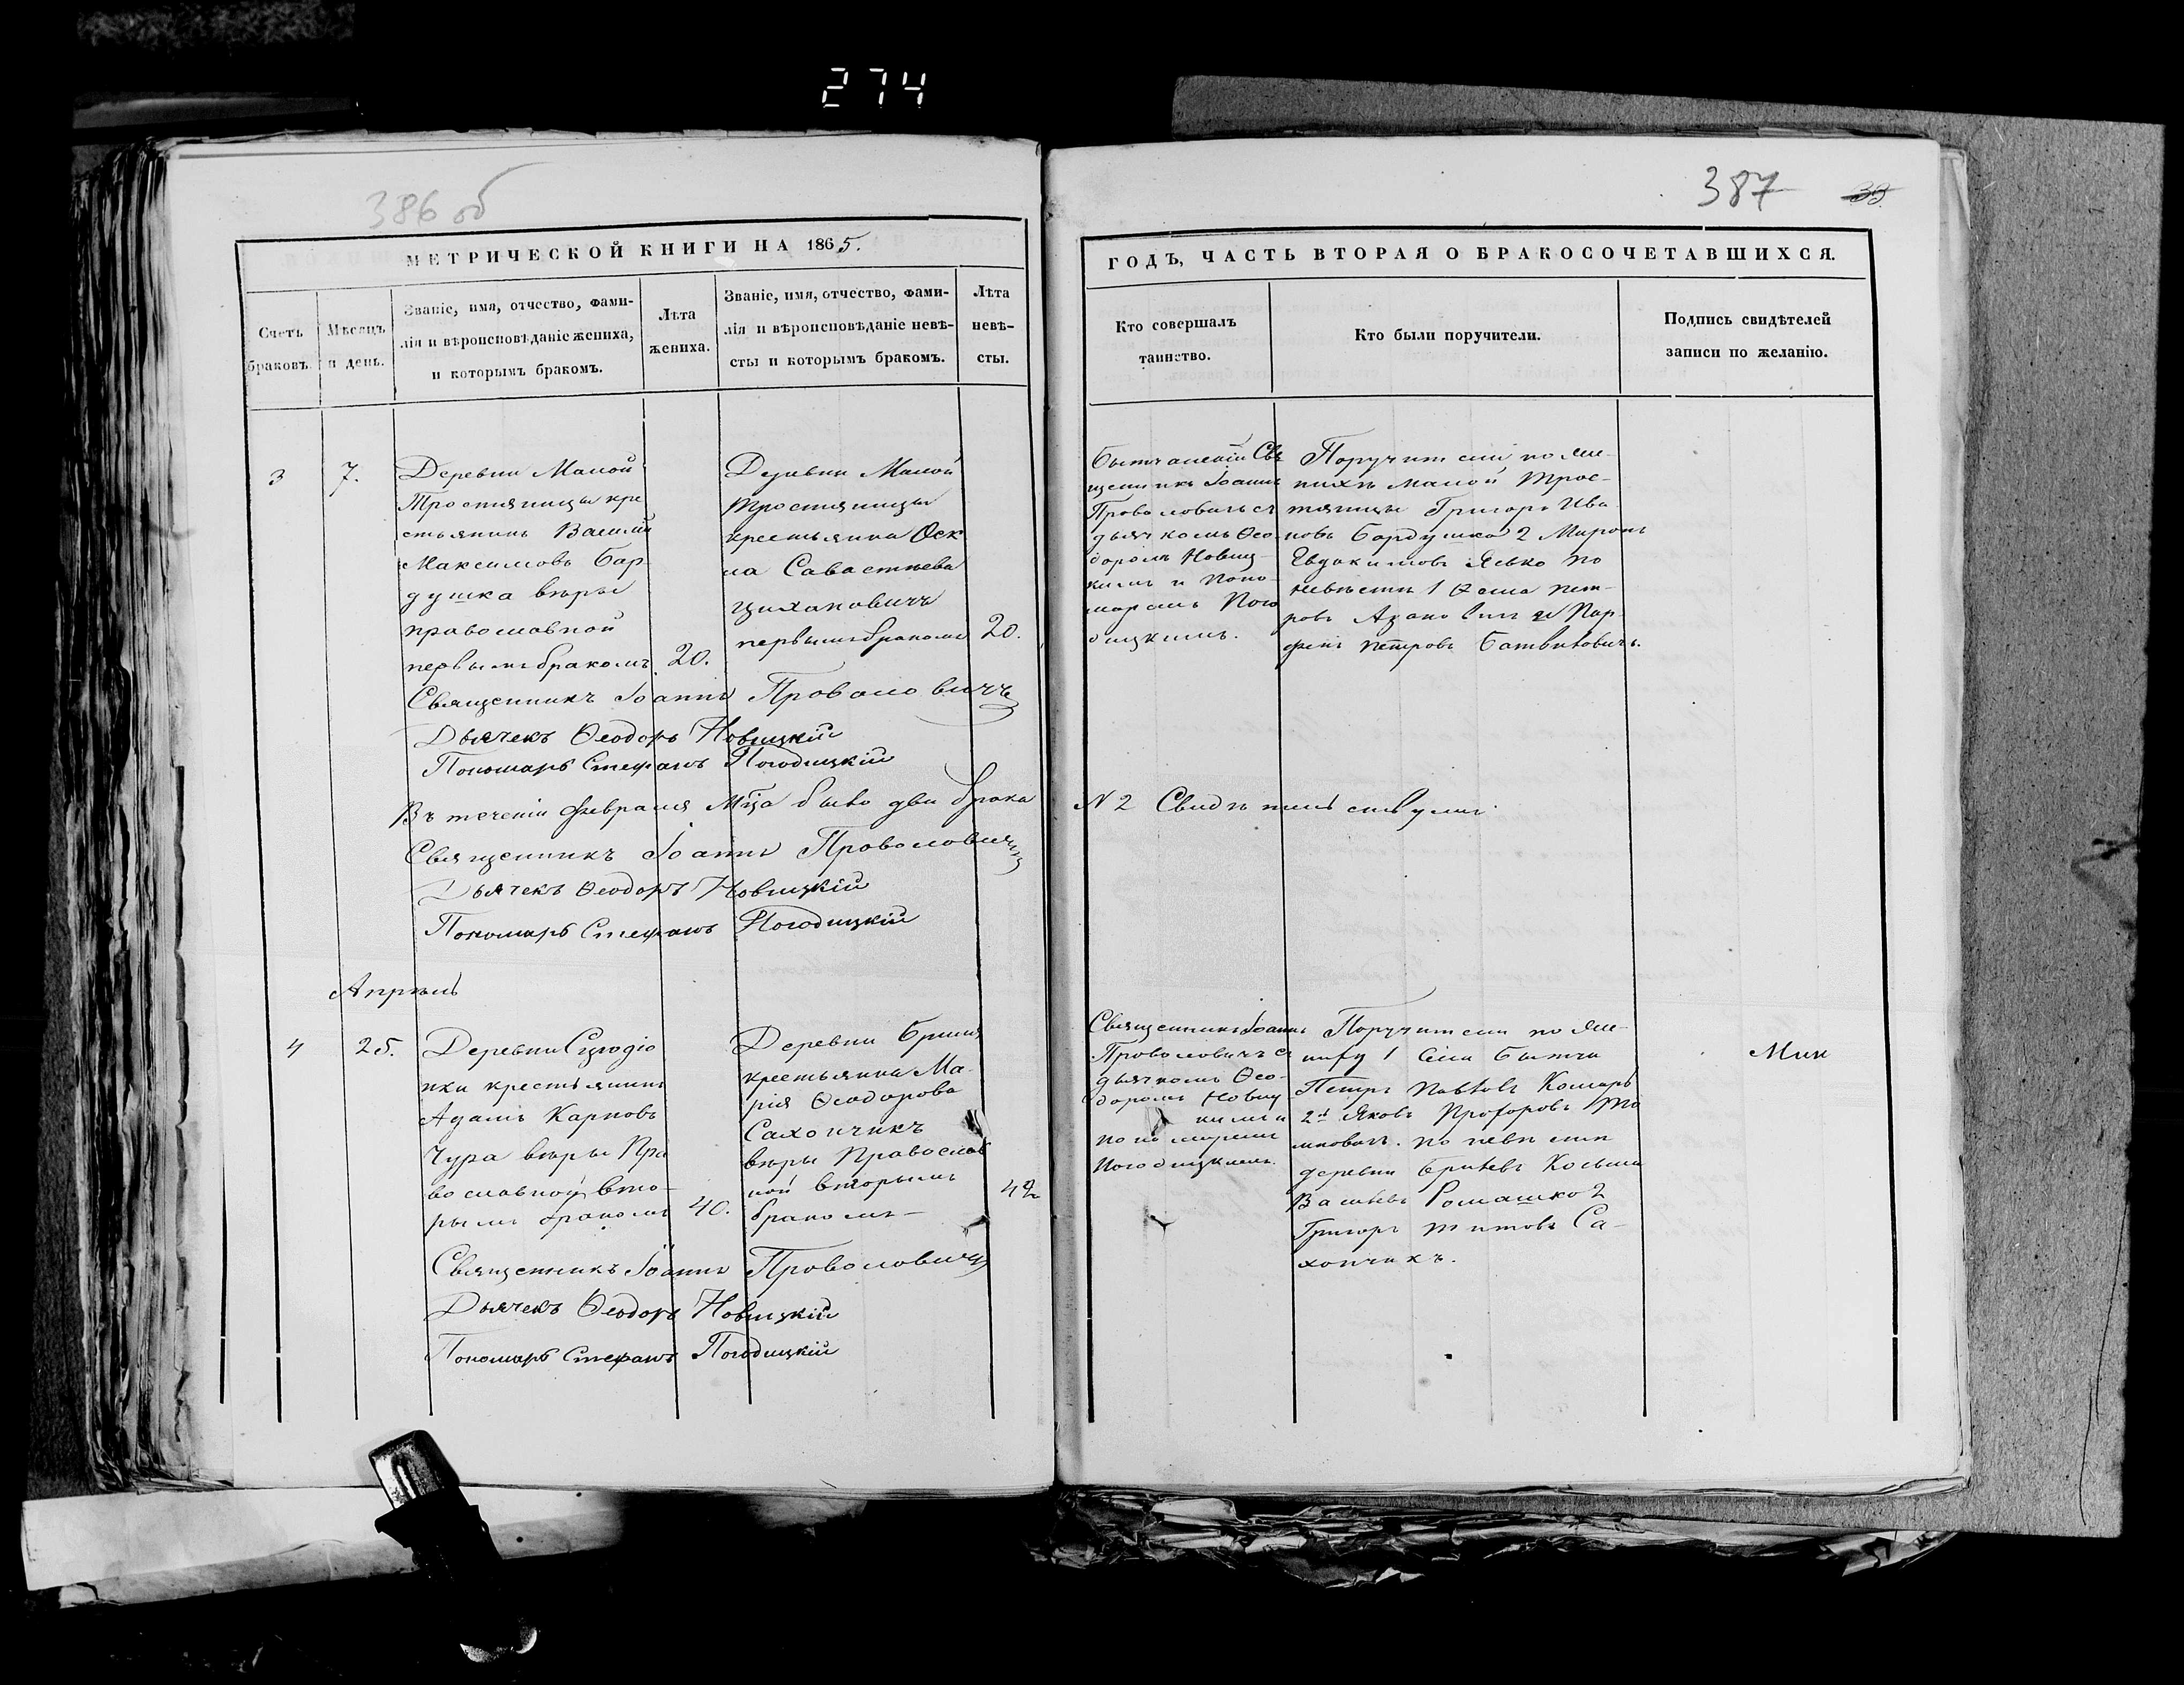 274
386 об
МЕТРИЧЕСКОЙ КНИГИ НА 1865.
Счетъ браковъ.
Мѣсяцъ и день.
Званіе, имя, отчество, фами-
лія и вѣроисповѣданіе жениха,
и которымъ бракомъ.
Лѣта
жениха.
Званіе, имя, отчество, фами-
лія и вѣроисповѣданіе невѣ-
сты и которымъ бракомъ.
Лѣта
невѣ-
сты.
3
7.
Деревни Малой
Тростяницы кре
стьянинъ Василій
Максимовъ Бар
душка вѣры
православной
первымъ бракомъ
20.
Деревни Малой
Тростяницы
крестьянка Ѳек
ла Савастѣева
Цихановичъ
первымъ бракомъ
20.
Священникъ Іоаннъ Проволовичъ
Дьячекъ Ѳеодоръ Новицкій
Пономарь Стефанъ Погодицкій
Въ теченіи Февраля Мца было два брака
Священникъ Іоаннъ Проволовичъ
Дьячекъ Ѳеодоръ Новицкій
Пономарь Стефанъ Погодицкій
Апрѣль
4
25.
Деревни
нки крестьянинъ
Адамъ Карповъ
Чура вѣры Пра
вославной вто-
рымъ бракомъ
40.
Деревни
крестьянка Ма-
рія Ѳеодорова
Сахончикъ
вѣры Православ
ной вторымъ
бракомъ
Священникъ Іоаннъ Проволовичъ
Дьячекъ Ѳеодоръ Новицкій
Пономарь Стефанъ Погодицкій
387
39.
ГОДЪ, ЧАСТЬ ВТОРАЯ О БРАКОСОЧЕТАВШИХСЯ.
Кто совершалъ
таинство.
Кто были поручители.
Подпись свидѣтелей
записи по желанію.
Свя
щенникъ Іоаннъ
Проволовичъ съ
дьячкомъ Ѳео-
доромъ Новиц-
кимъ и Поно-
маремъ Пого
дицкимъ.
Поручители по же-
нихѣ Малой Трос-
тяницы Григорь Ива
новъ Бардушка 2 Миронъ
Евдокимовъ Ясько по
невѣстѣ 1 Ѳома Пет-
ровъ 2 Пар-
фенъ Петровъ
N 2
Священникъ Іоаннъ
Проволовичъ съ
дьячкомъ Ѳео-
доромъ Новиц
кимъ и
пономаремъ
Погодицкимъ.
Поручители по же-
ниху 1 села Бытчи
Петръ Павловъ Комаръ
2й Яковъ Прохоровъ
по невѣстѣ
деревни Косьма
Ромашко 2
Григорь Титовъ Са-
хончикъ.